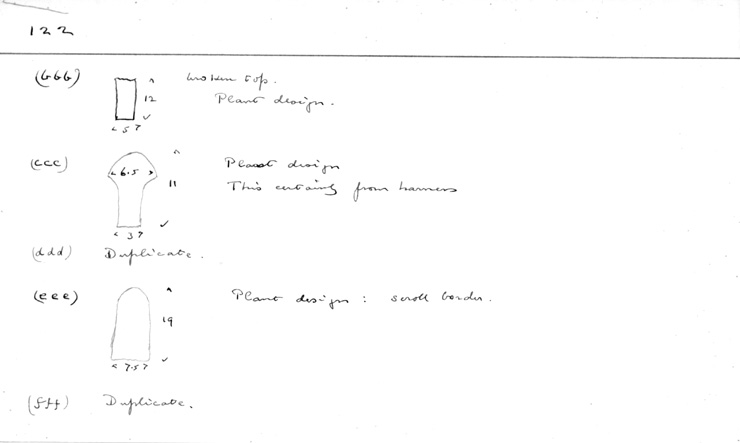 122
(bbb) broken top.
12 Plant design.
< 5 >
(ccc) Plant design
< 6.5 > 11 This certainly from harness
< 3 >
(ddd) Duplicate.
(eee) Plant design : scroll border.
19
< 7.5 >
(fff) Duplicate.